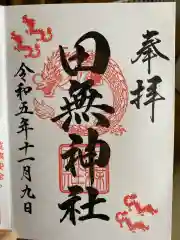 奉拝
田無神社
令和五年十一月九日